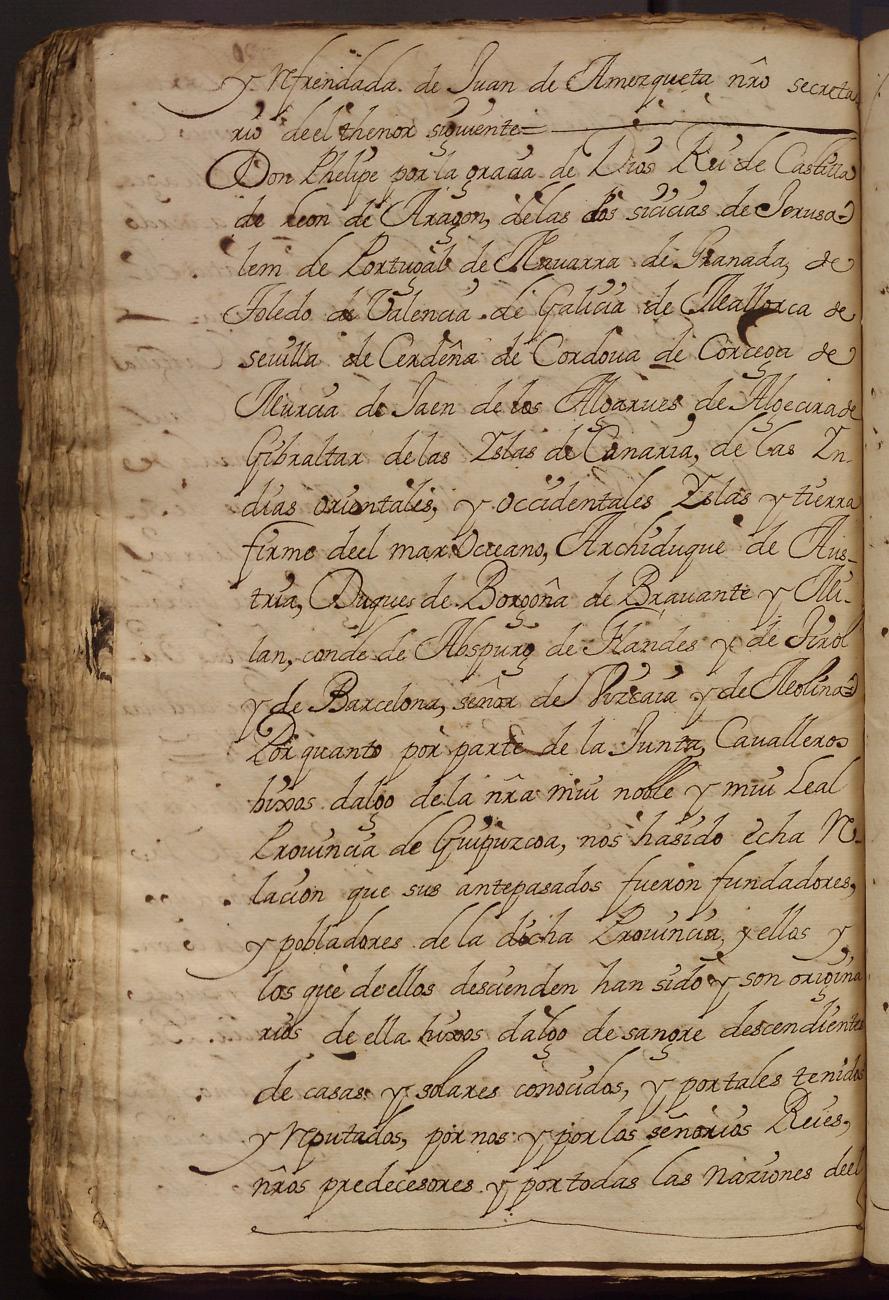 y Refrendada. de Juan de Amezqueta nr̃o secreta
rio deel thenor siguiente=
Don Phelipe por la gracia de Dios Rei de Castilla
de Leon de Aragon, delas dos sicicias de Jerusa=
lem de Portugal de Navarra de Granada, de
Toledo de Valencia de Galicia de Mallorca de
sevilla de Cerdeña de Cordova de Corcega de
Murcia de Jaen de los Algarves de Algecira de
Gibraltar de las Yslas de Canaria, de las Yn-
dias orientales, y occidentales Yslas y tierra
firme deel mar Oceano, Archiduque de Aus-
tria, Duques de Borgoña de Bravante y Mi-
lan, conde de Abspurg de Flandes y de Tirol
y de Barcelona, señor de Vizcaia y de Molina=
Por quanto por parte de la Junta, Cavalleros
hixos dalgo de la nr̃a mui noble y mui Leal
Provincia de Guipuzcoa, nos hasido echa Re-
lacion que sus antepasados fueron fundadores,
y pobladores de la dicha Provincia, y ellos y
los que de ellos descienden han sido y son origina
rios de ella hixos dalgo de sangre descendientes
de casas y solares conocidos, y por tales tenidos
y Reputados, por nos y por los señorios Reies,
nr̃os predecesores y por todas las naziones deel